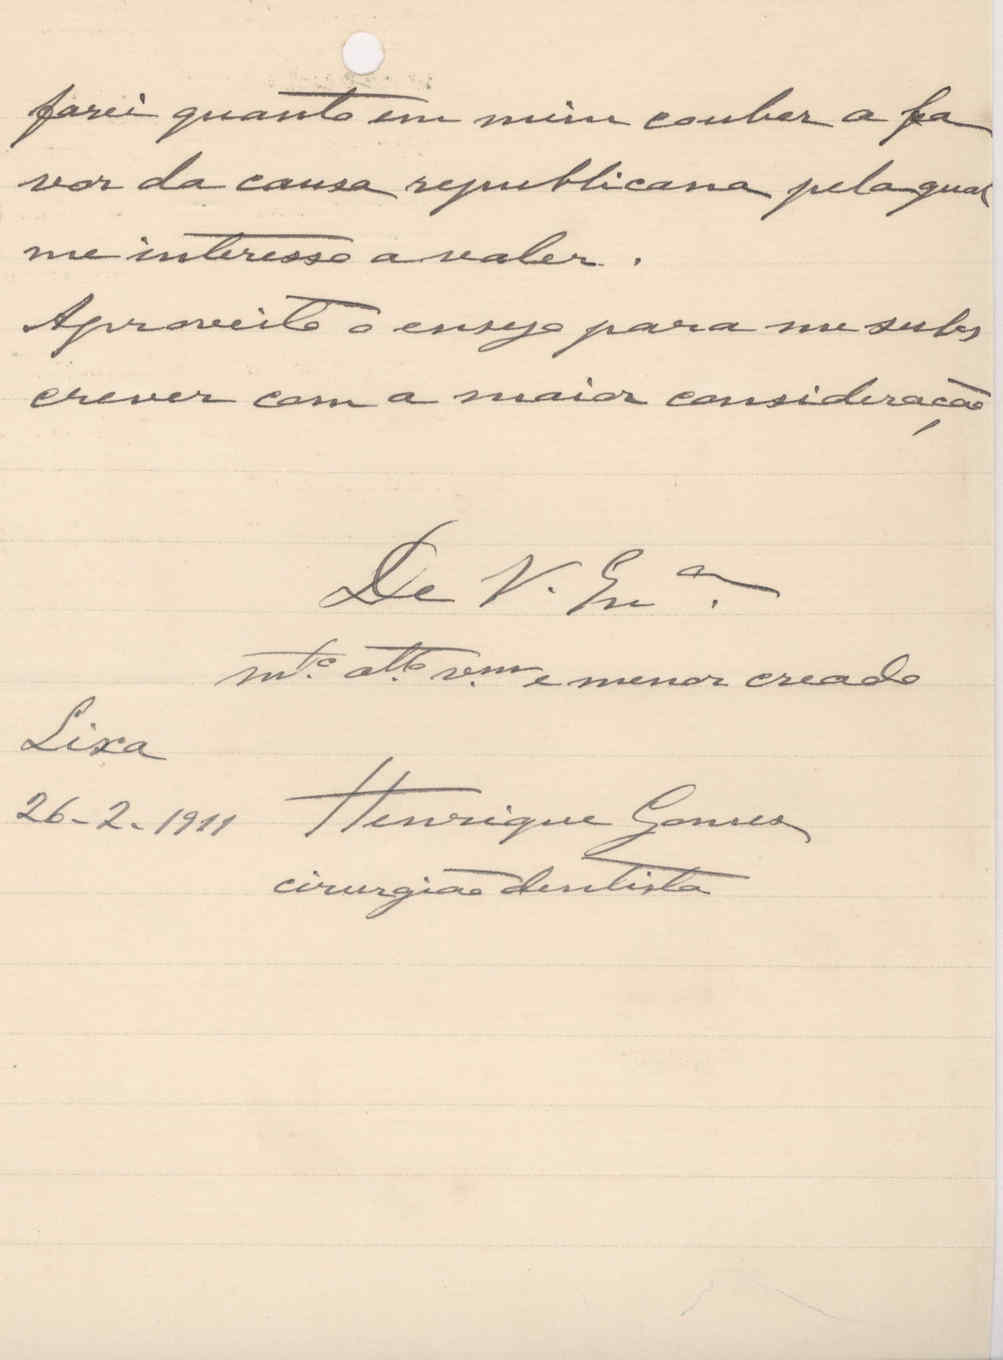 farei quanto em mim couber a fa
vor da causa republicana pela qual
me interesso a valer.
Aproveito o ensejo para me subs
crever com a maior consideração
De V. Ex.ª
mt.º att.º v.ᵒʳ e menor creado
Lixa
26-2-1911 Henrique Gomes
cirurgião dentista